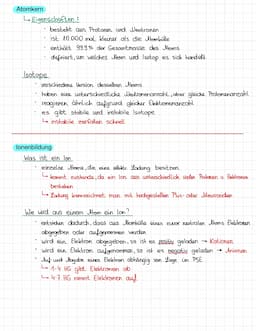 Atomkern
↳ Eigenschaften:
• besteht aus Protonen und Neutronen
• ist 10.000 mal kleiner als die Atomhülle
• enthält 99.9% der Gesamtmasse des Atoms
• definiert, um welches Atom und Isotop es sich handelt
Isotope
• verschiedene Version desselben Atoms
• haben eine unterschiedliche Neutronenanzahl, aber gleiche Protonenanzahl
• reagieren ähnlich aufgrund gleicher Elektronenanzahl
es gibt stabile und instabile Isotope
↳ instabile zerfallen schnell
Ionenbildung
Was ist ein Ion
• einzelne Atome, die eine elektr. Ladung besitzen
↳ kommt zustande, da ein Ion aus unterschiedlich vielen Protonen u. Elektronen
bestehen
↳ Ladung kennzeichnet man mit hochgestelltem Plus- oder Minuszeichen
Wie wird aus einem Atom ein Ion?
• entstehen dadurch, dass aus Atomhülle eines zuvor neutralen Atoms Elektronen
abgegeben oder aufgenommen werden
• wird ein Elektron abgegeben, so ist es positiv geladen → Kationen
• wird ein Elektron aufgenommen, so ist es negativ geladen → Anionen
• Auf und Abgabe eines Elektron abhängig von Lage im PSE
↳ 1-4 HG gibt Elektronen ab
↳ 4-7 HG nimmt Elektronen auf